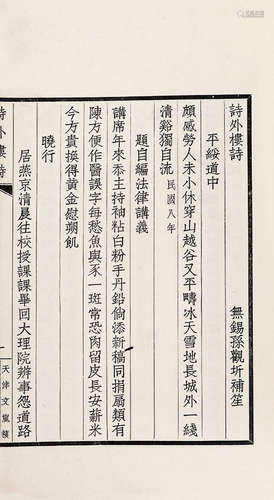 詩外樓詩
無錫孫觀圻補笙
平綏道中
頗感勞人未小休穿山越谷又平疇冰天雪地長城外一綫
清谿獨自流民國八年
題自編法律講義
講席年來忝主持袖粘白粉手丹鉛倘添新稿同捐扇類有
陳方便作醫誤字每愁魚與豕一斑常恐肉留皮長安薪米
今方貴換得黃金慰朔飢
曉行
居燕京清晨往校授課課畢回大理院辦事怨道路
詩外樓詩
一
天津文嵐簃